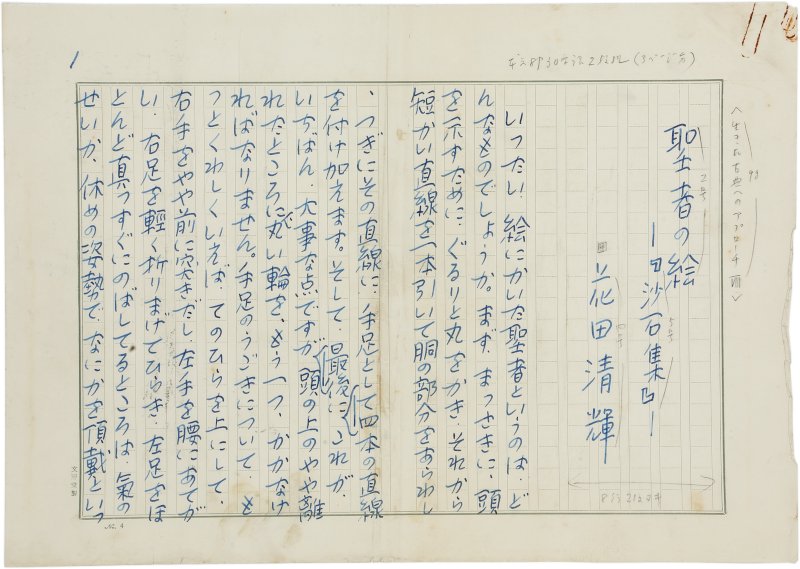 聖者の絵
―沙石集―
花田清輝
いったい、絵にかいた聖者というのは、ど
んなものでしょうか。まず、まっさきに、頭
を示すために、ぐるりと丸をかき、それから
短かい直線を一本引いて胴の部分をあらわし
、つぎにその直線に、手足として四本の直線
を付け加えます。そして、最後に、これが、
いちばん、大事な点ですが、頭の上のやや離
れたところに、丸い輪を、もう一つ、かかなけ
ればなりません。手足のうごきについて、も
っとくわしくいえば、てのひらを上にして、
右手をやや前に突きだし、左手を腰にあてが
い、右足を軽く折りまげてひらき、左足をほ
とんど真っすぐにのばしてるところは、氣の
せいか、休めの姿勢で、なにかを頂戴といっ
No. 4